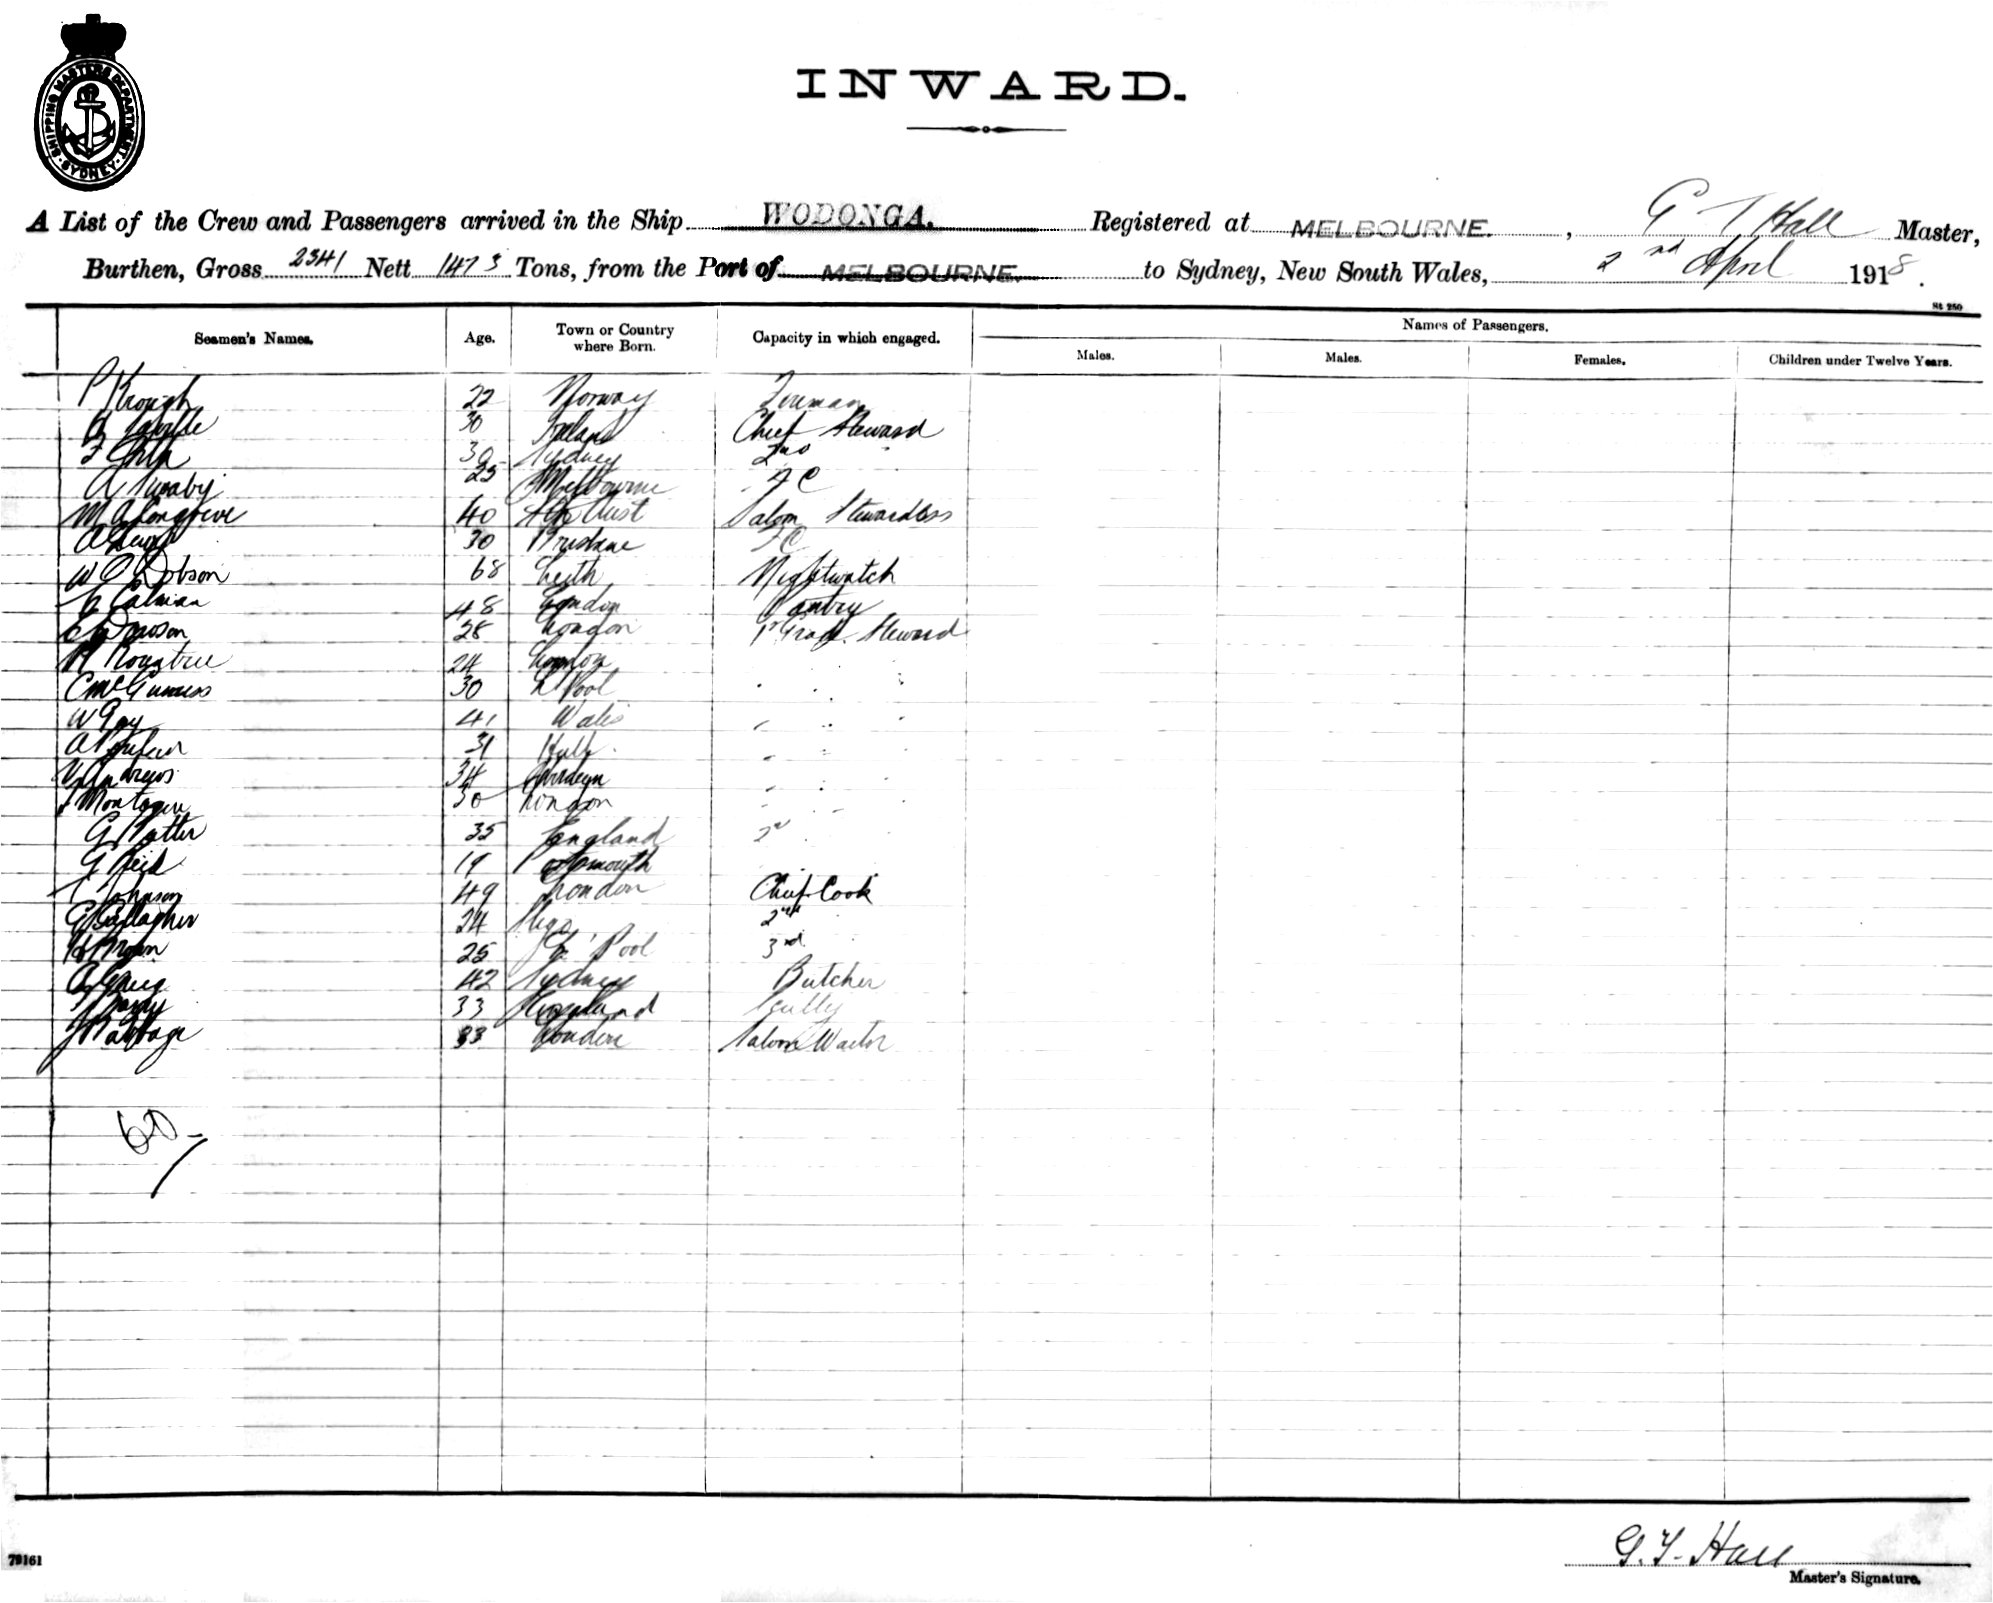 SHIPPING MASTERS DEPARTMENT
SYDNEY
INWARD.
A List of the Crew and Passengers arrived in the Ship WODONGA. Registered at MELBOURNE. , G T Hall Master,
Burthen, Gross 2341 Nett 1473 Tons, from the Port of MELBOURNE. to Sydney, New South Wales, 2nd April 1918.
St 250
Seamen's Names. Age. Town or Country where Born. Capacity in which engaged. Names of Passengers.
Males. Males. Females. Children under Twelve Years.
P Krough 22 Norway Fireman
30 Ireland Chief Steward
30 Sydney 2nd "
25 Melbourne
M A Longrove 40 Aust Saloon Stewardess
30 Brisbane
W Dobson 68 Leith Nightwatch
48 London Pantry
28 London 1st Grade Steward
R Rountree 24 London
C McGuiness 30 L'Pool
W Gay 41 Wales
31 Hull
Andrews 34 Aberdeen
Montague 30 London
G Potter 35 England 2nd
G Reid 19 Portsmouth
Johnson 49 London Chief Cook
G Gallagher 24 Sligo 2nd
H Brown 25 L'Pool 3rd
42 Sydney Butcher
33 England Scully
33 London Saloon Waiter
60
G. T. Hall
Master's Signature.
79161